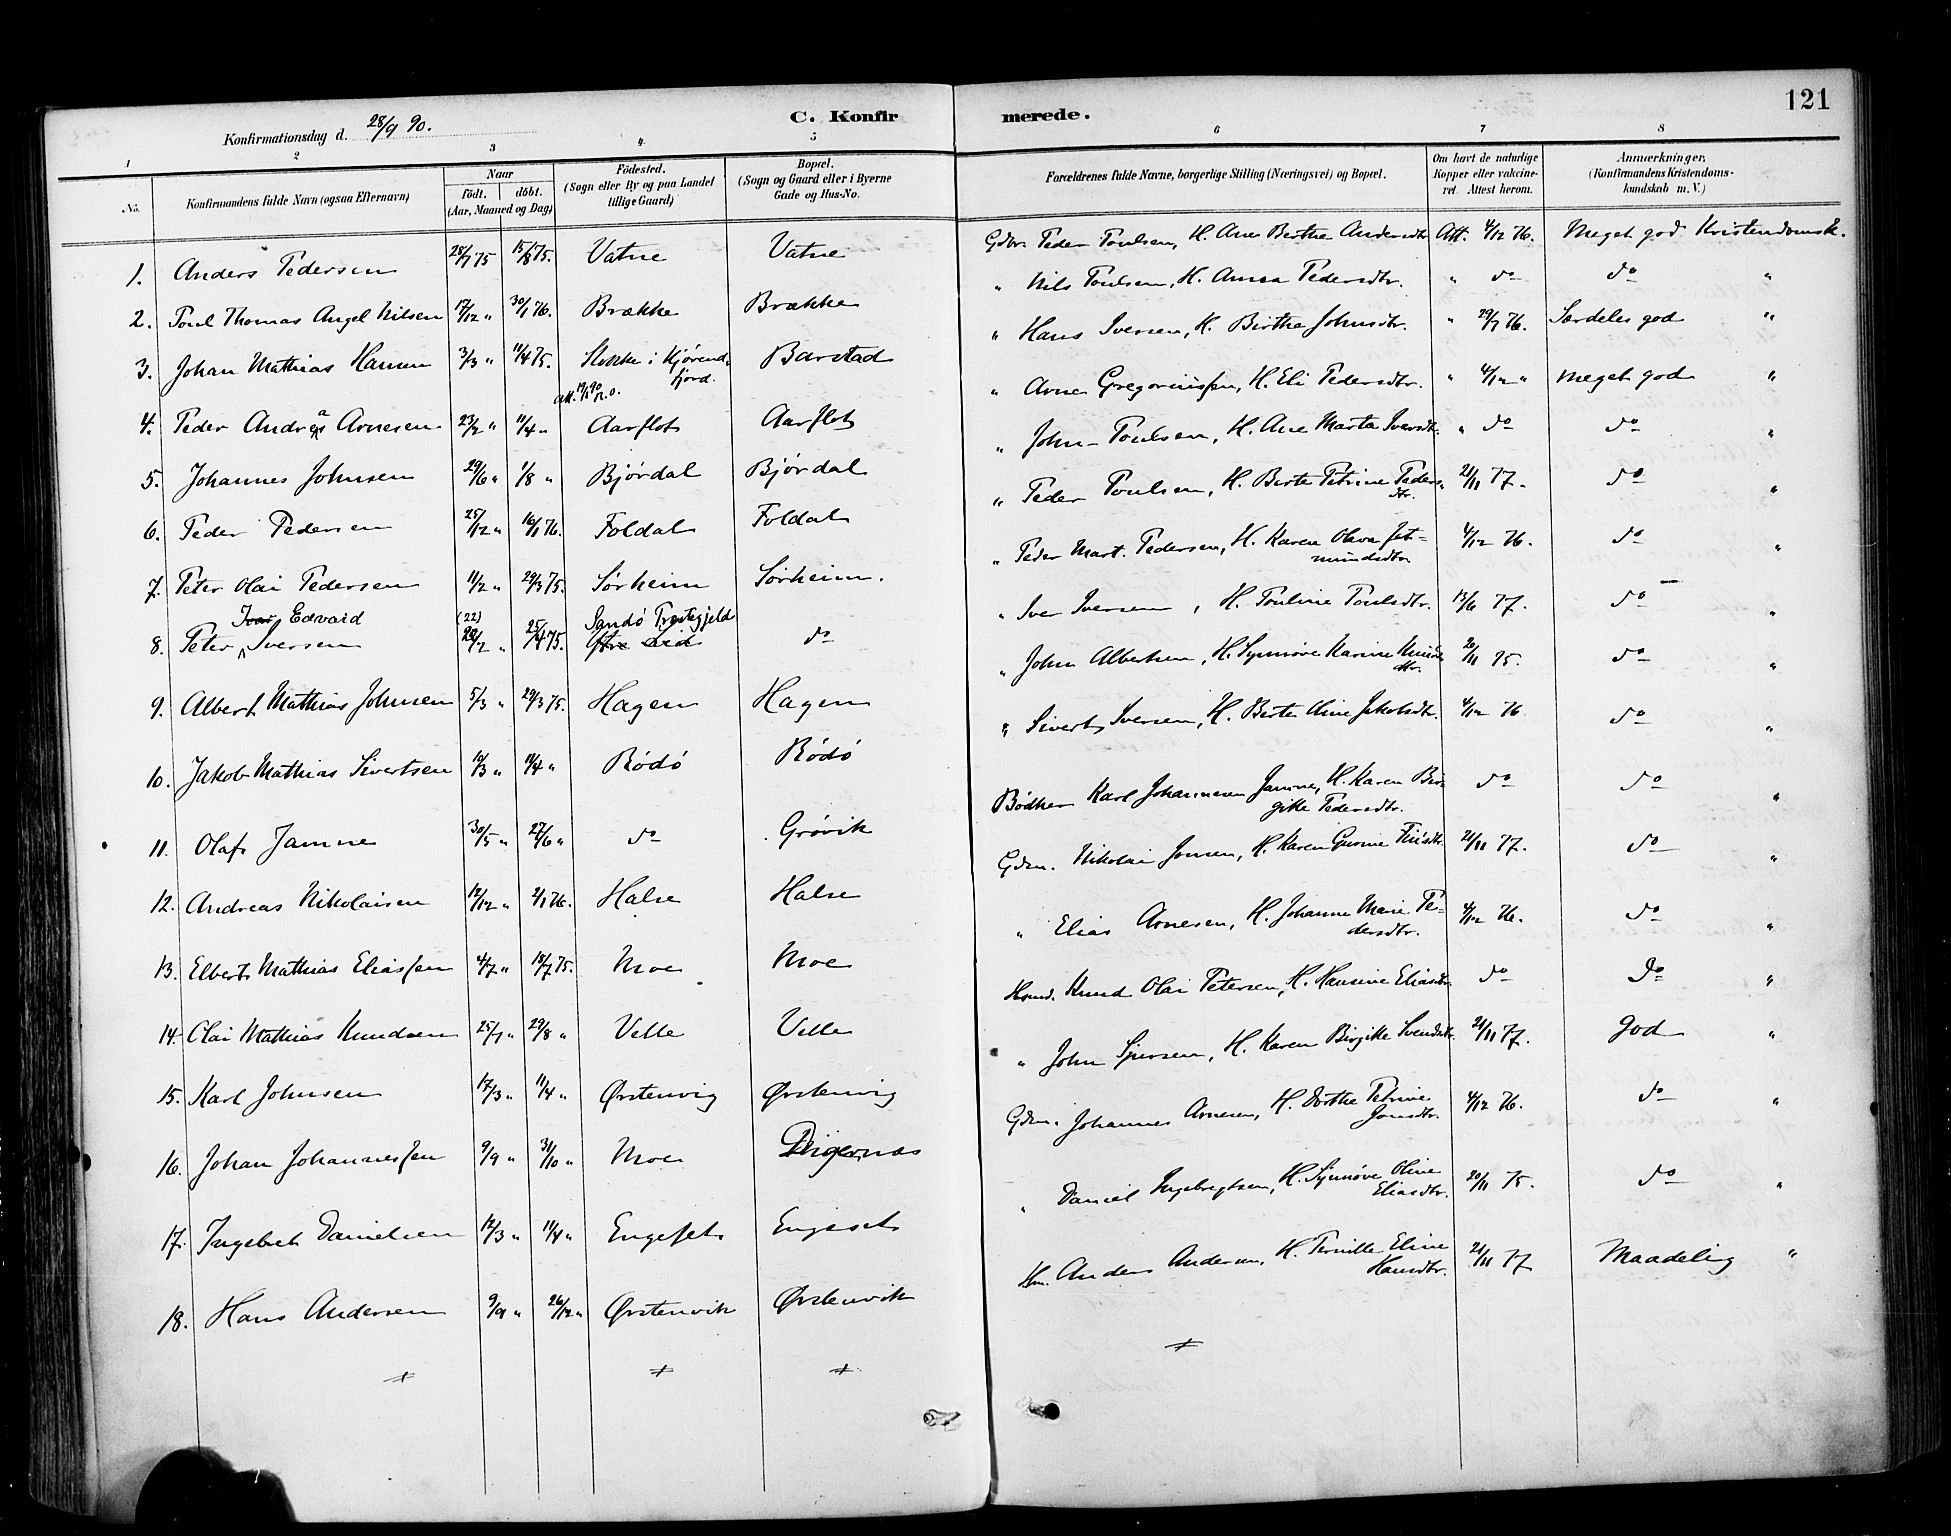 121
C. Konfirmerede.
Konfirmationsdag d. 28/9 90.
1 2 3 4 5 6 7 8
No. Konfirmandens fulde Navn (ogsaa Efternavn) Naar födt. döbt. (Aar, Maaned og Dag) Födested. (Sogn eller By og paa Landet tillige Gaard) Bopæl. (Sogn og Gaard eller i Byerne Gade og Hus-No. Forældrenes fulde Navne, borgerlige Stilling (Næringsvei) og Bopæl. Om havt de naturlige Kopper eller vaccineret. Attest herom. Anmærkninger, (Konfirmandens Kristendomskundskab m. V.)
1. Anders Pedersen 28/7 75 15/8 75. Vatne Vatne Gdbr. Peder Poulsen, H. Ane Berthe Andersdtr Att. 4/12 76. Meget god Kristendomsk.
2. Poul Thomas Angel Nilsen 17/12 " 30/1 76. Brække Brække " Nils Poulsen, H. Anna Pedersdtr. " do do "
3. Johan Mathias Hansen 3/3 " 11/4 75. Stokke i Hjørendfjord. Att. 19/9 90 n.o. Barstad " Hans Iversen, H. Birthe Johnsdtr. " 29/7 76. Særdeles god "
4. Peder Andrea Arnesen 23/2 " 11/4 " Aarflot Aarflot " Arne Gregoriussen, H. Eli Pedersdtr. " 4/12 " meget god "
5. Johannes Johnsen 29/6 " 1/8 " Bjørdal Bjørdal " John Poulsen, H. Ane Marta Iversdtr. " do do "
6. Peder Pedersen 25/12 " 16/1 76. Foldal Foldal " Peder Poulsen, H. Berte Petrine Pedersdtr. 21/11 77. do "
7. Peter Olai Pedersen 11/2 " 29/3 75. Sørheim Sørheim. " Peder Mart. Pedersen, H. Karen Oliva Jetmundsdtr 4/12 76. do "
8. Peter Ivar Edvard Iversen (22) 28/2 " 25/4 75. Sandø Præstegjeld do " Iver Iversen, H. Pouline Poulsdtr. 13/6 77. do "
9. Albert Mathias Johnsen 5/3 " 29/3 75. Hagen Hagen " John Albertsen, H. Synnøve Karine Knudsdtr. 20/11 75. do "
10. Jakob Mathias Sivertsen 10/3 " 11/4 " Rødø Rødø " Sivert Iversen, H. Berte Oline Jakobsdtr. 4/12 76 do "
11. Olaf Jamne 30/5 " 27/6 " do Grøvik Bødker Karl Johannesen Jamne, H. Karen Birgitte Pedersdtr. do do "
12. Andreas Nikolaisen 12/12 " 2/1 76. Halse Halse Gdm. Nikolai Jonsen, H. Karen Gurine 21/11 77. do "
13. Elbert Mathias Eliassen 4/7 " 18/7 75. Moe Moe " Elias Arnesen, H. Johanne Marie Pedersdtr. 4/12 76. do "
14. Olai Mathias Knudsen 25/7 " 29/8 " Velle Velle Hsmd. Knud Olai Petersen, H. Hansine Eliasdtr. do do "
15. Karl Johnsen 17/3 " 11/4 " Ørstenvig Ørstenvig " John Sjursen, H. Karen Birgitte Svendsdtr. 21/11 77. god "
16. Johan Johannessen 9/9 " 31/10 " Moe Digernæs Gdm. Johannes Arnesen, H. Dorthe Petrine Jonsdtr. 4/12 76. do "
17. Ingebret Danielsen 12/3 " 11/4 " Engeset Engeset " Daniel Ingebregtsen, H. Synnøve Oline Eliasdtr. 20/11 75. do "
18. Hans Andersen 9/9 " 26/12 " Ørstenvik Ørstenvik Hm. Anders Andersen, H. Pernille Eline Hansdtr. 21/11 77 Maadelig "